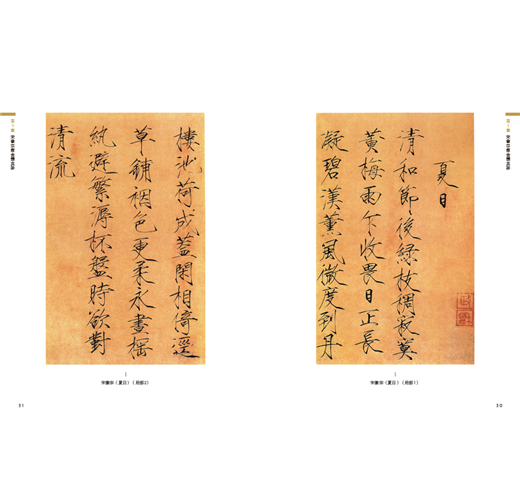 夏日
清和節後綠枝稠寂寞
黃梅雨乍收畏日正長
凝碧漢薰風微度到丹
宋徽宗《夏日》(局部1)
50
樓池荷成蓋閑相倚逕
草鋪裀色更柔永晝搖
紈避繁溽杯盤時欲對
清流
宋徽宗《夏日》(局部2)
51